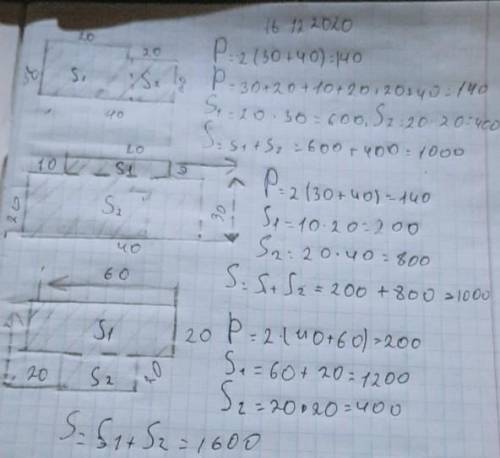 16 12 2020
20
20
30
S₁
S₂
40
P=2(30+40)=140
P=30+20+10+20+20+40=140
S₁=20·30=600, S₂=20·20=400
S=S₁+S₂=600+400=1000
20
10
S1
5
S₂
20
30
40
P=2(30+40)=140
S₁=10·20=200
S₂=20·40=800
S=S₁+S₂=200+800=1000
60
S1
20
20
S₂
20
P=2·(40+60)=200
S₁=60+20=1200
S₂=20·20=400
S=S1+S₂=1600